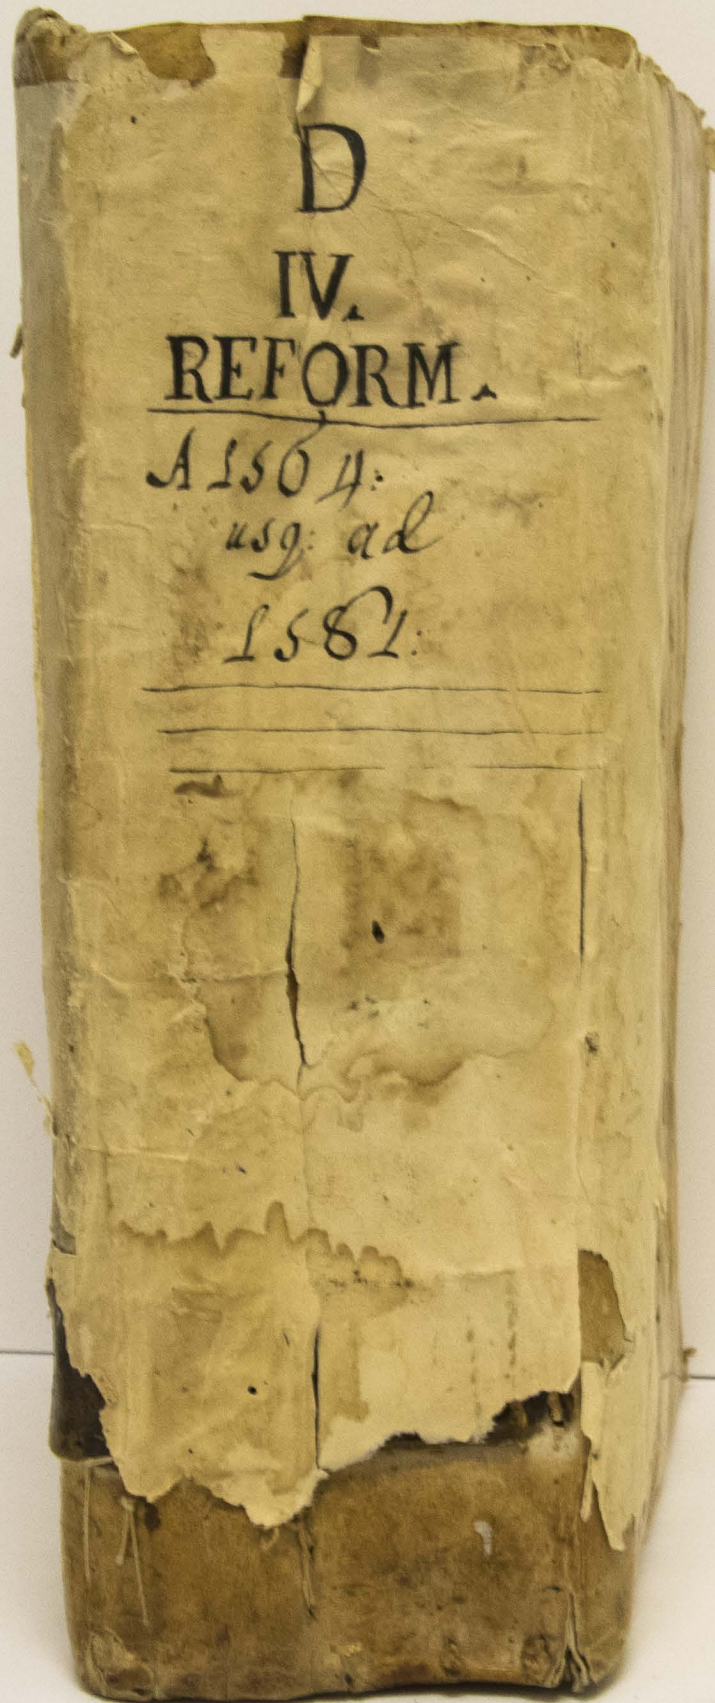 D
IV.
REFORM.
A 1564:
usq: ad
1581: